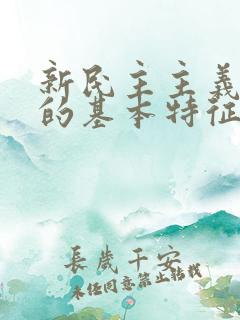 新民主主義
的基本特征
長歲千安
未任同意禁止轉載